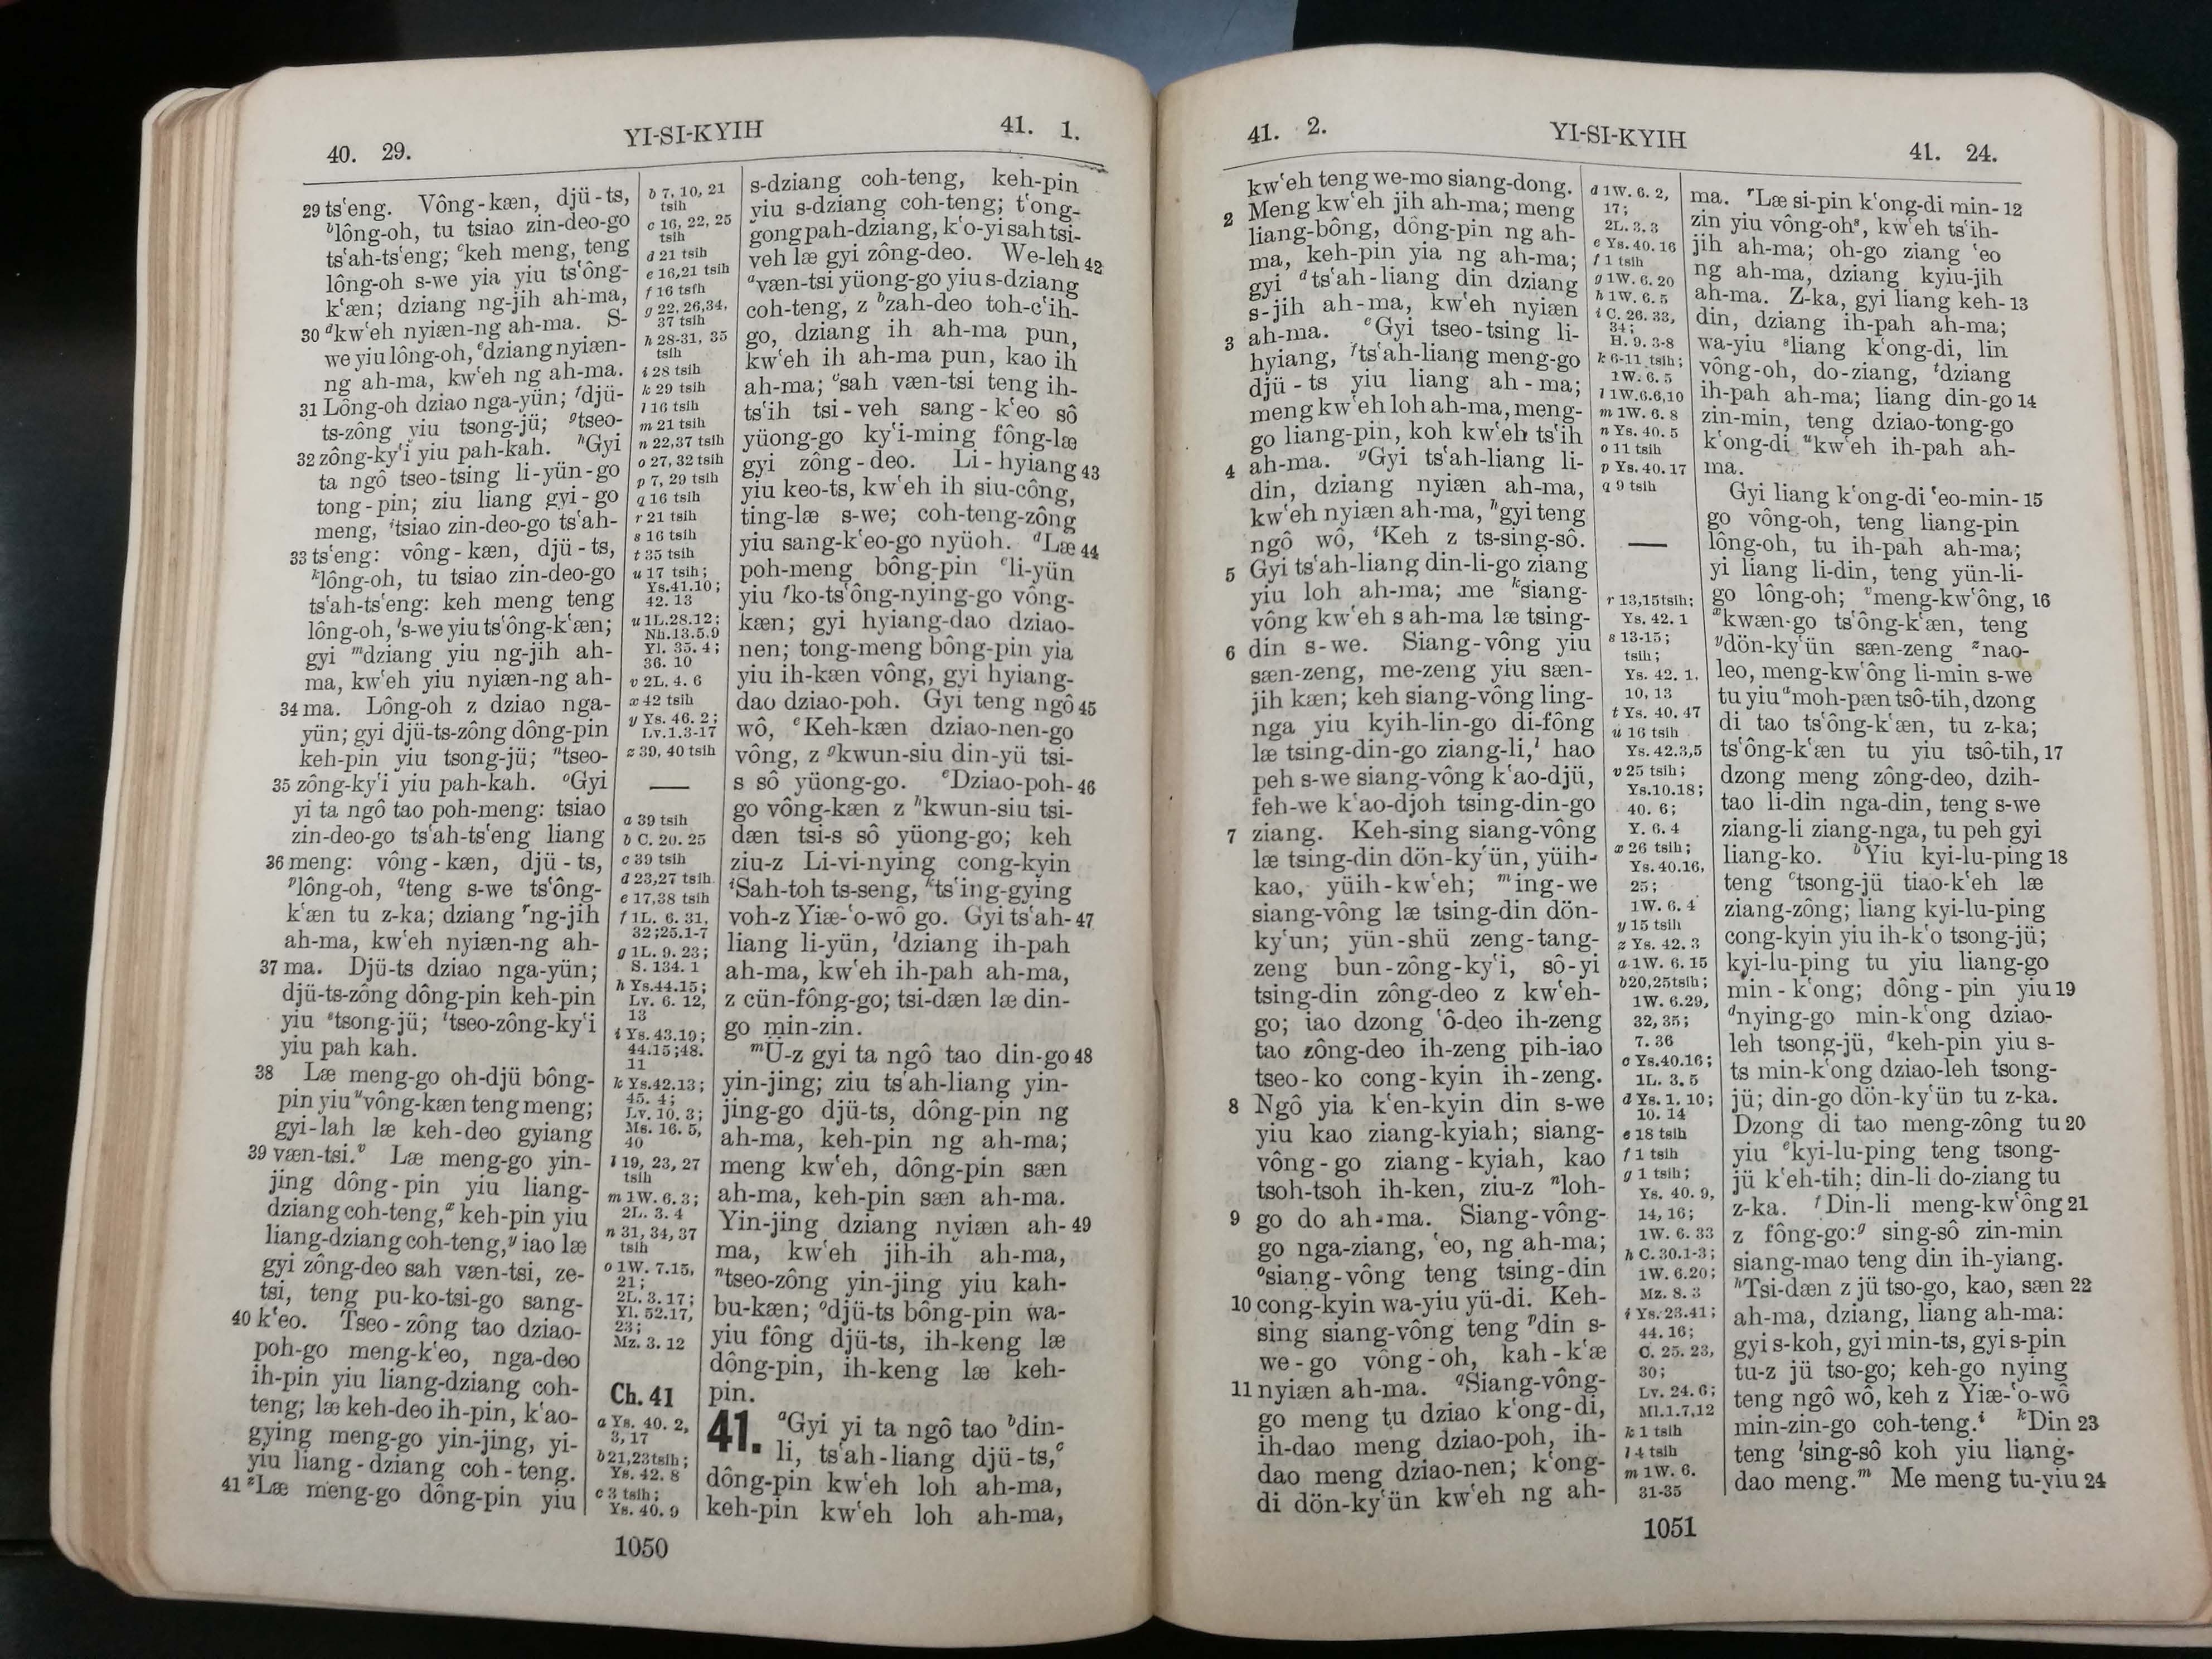 40. 29.
YI-SI-KYIH
41. 1.
29 tsʻeng. Vông-kæn, djü-ts,
ᵇlông-oh, tu tsiao zin-deo-go
tsʻah-tsʻeng; ᶜkeh meng, teng
lông-oh s-we yia yiu tsʻông-
kʻæn; dziang ng-jih ah-ma,
30 ᵈkwʻeh nyiæn-ng ah-ma. S-
we yiu lông-oh, ᵉdziang nyiæn-
ng ah-ma, kwʻeh ng ah-ma.
31 Lông-oh dziao nga-yün; ᶠdjü-
ts-zông yiu tsong-jü; ᵍtseo-
32 zông-kyʻi yiu pah-kah. ʰGyi
ta ngô tseo-tsing li-yün-go
tong-pin; ziu liang gyi-go
meng, ⁱtsiao zin-deo-go tsʻah-
33 tsʻeng: vông-kæn, djü-ts,
ᵏlông-oh, tu tsiao zin-deo-go
tsʻah-tsʻeng: keh meng teng
lông-oh, ˡs-we yiu tsʻông-kʻæn;
gyi ᵐdziang yiu ng-jih ah-
ma, kwʻeh yiu nyiæn-ng ah-
34 ma. Lông-oh z dziao nga-
yün; gyi djü-ts-zông dông-pin
keh-pin yiu tsong-jü; ⁿtseo-
35 zông-kyʻi yiu pah-kah. ᵒGyi
yi ta ngô tao poh-meng: tsiao
zin-deo-go tsʻah-tsʻeng liang
36 meng: vông-kæn, djü-ts,
ᵖlông-oh, ᑫteng s-we tsʻông-
kʻæn tu z-ka; dziang ʳng-jih
ah-ma, kwʻeh nyiæn-ng ah-
37 ma. Djü-ts dziao nga-yün;
djü-ts-zông dông-pin keh-pin
yiu ˢtsong-jü; ᵗtseo-zông-kyʻi
yiu pah kah.
38 Læ meng-go oh-djü bông-
pin yiu ᵘvông-kæn teng meng;
gyi-lah læ keh-deo gyiang
39 væn-tsi.ᵛ Læ meng-go yin-
jing dông-pin yiu liang-
dziang coh-teng,ˣ keh-pin yiu
liang-dziang coh-teng,ʸ iao læ
gyi zông-deo sah væn-tsi, ze-
tsi, teng pu-ko-tsi-go sang-
40 kʻeo. Tseo-zông tao dziao-
poh-go meng-kʻeo, nga-deo
ih-pin yiu liang-dziang coh-
teng; læ keh-deo ih-pin, kʻao-
gying meng-go yin-jing, yi-
yiu liang-dziang coh-teng.
41 ᶻLæ meng-go dông-pin yiu
b 7, 10, 21
tsih
c 16, 22, 25
tsih
d 21 tsih
e 16,21 tsih
f 16 tsih
g 22, 26,34,
37 tsih
h 28-31, 35
tsih
i 28 tsih
k 29 tsih
l 16 tsih
m 21 tsih
n 22,37 tsih
o 27, 32 tsih
p 7, 29 tsih
q 16 tsih
r 21 tsih
s 16 tsih
t 35 tsih
u 17 tsih;
Ys.41.10;
42. 13
u 1L.28.12;
Nh.13.5.9
Yl. 35. 4;
36. 10
v 2L. 4. 6
x 42 tsih
y Ys. 46. 2;
Lv.1.3-17
z 39, 40 tsih
a 39 tsih
b C. 20. 25
c 39 tsih
d 23,27 tsih
e 17,38 tsih
f 1L. 6. 31,
32;25.1-7
g 1L. 9. 23;
S. 134. 1
h Ys.44.15;
Lv. 6. 12,
13
i Ys. 43.19;
44.15;48.
11
k Ys.42.13;
45. 4;
Lv. 10. 3;
Ms. 16. 5,
40
l 19, 23, 27
tsih
m 1W. 6.3;
2L. 3. 4
n 31, 34, 37
tsih
o 1W. 7.15,
21;
2L. 3. 17;
Yl. 52.17,
23;
Mz. 3. 12
Ch. 41
a Ys. 40. 2,
3, 17
b 21,23tsih;
Ys. 42. 8
c 3 tsih;
Ys. 40. 9
s-dziang coh-teng, keh-pin
yiu s-dziang coh-teng; tʻong-
gong pah-dziang, kʻo-yi sah tsi-
veh læ gyi zông-deo. We-leh 42
ᵃvæn-tsi yüong-go yiu s-dziang
coh-teng, z ᵇzah-deo toh-cʻih-
go, dziang ih ah-ma pun,
kwʻeh ih ah-ma pun, kao ih
ah-ma; ᶜsah væn-tsi teng ih-
tsʻih tsi-veh sang-kʻeo sô
yüong-go kyʻi-ming fông-læ
gyi zông-deo. Li-hyiang 43
yiu keo-ts, kwʻeh ih siu-công,
ting-læ s-we; coh-teng-zông
yiu sang-kʻeo-go nyüoh. ᵈLæ 44
poh-meng bông-pin ᵉli-yün
yiu ᶠko-tsʻông-nying-go vông-
kæn; gyi hyiang-dao dziao-
nen; tong-meng bông-pin yia
yiu ih-kæn vông, gyi hyiang-
dao dziao-poh. Gyi teng ngô 45
wô, ᵉKeh-kæn dziao-nen-go
vông, z ᵍkwun-siu din-yü tsi-
s sô yüong-go. ᵉDziao-poh- 46
go vông-kæn z ʰkwun-siu tsi-
dæn tsi-s sô yüong-go; keh
ziu-z Li-vi-nying cong-kyin
ⁱSah-toh ts-seng, ᵏtsʻing-gying
voh-z Yiæ-ʻo-wô go. Gyi tsʻah- 47
liang li-yün, ˡdziang ih-pah
ah-ma, kwʻeh ih-pah ah-ma,
z cün-fông-go; tsi-dæn læ din-
go min-zin.
ᵐÜ-z gyi ta ngô tao din-go 48
yin-jing; ziu tsʻah-liang yin-
jing-go djü-ts, dông-pin ng
ah-ma, keh-pin ng ah-ma;
meng kwʻeh, dông-pin sæn
ah-ma, keh-pin sæn ah-ma.
Yin-jing dziang nyiæn ah- 49
ma, kwʻeh jih-ih ah-ma,
ⁿtseo-zông yin-jing yiu kah-
bu-kæn; ᵒdjü-ts bông-pin wa-
yiu fông djü-ts, ih-keng læ
dông-pin, ih-keng læ keh-
pin.
41. ᵃGyi yi ta ngô tao ᵇdin-
li, tsʻah-liang djü-ts,ᶜ
dông-pin kwʻeh loh ah-ma,
keh-pin kwʻeh loh ah-ma,
1050
41. 2.
YI-SI-KYIH
41. 24.
kwʻeh teng we-mo siang-dong.
2 Meng kwʻeh jih ah-ma; meng
liang-bông, dông-pin ng ah-
ma, keh-pin yia ng ah-ma;
gyi ᵈtsʻah-liang din dziang
s-jih ah-ma, kwʻeh nyiæn
3 ah-ma. ᵉGyi tseo-tsing li-
hyiang, ᶠtsʻah-liang meng-go
djü-ts yiu liang ah-ma;
meng kwʻeh loh ah-ma, meng-
go liang-pin, koh kwʻeh tsʻih
4 ah-ma. ᵍGyi tsʻah-liang li-
din, dziang nyiæn ah-ma,
kwʻeh nyiæn ah-ma, ʰgyi teng
ngô wô, ⁱKeh z ts-sing-sô.
5 Gyi tsʻah-liang din-li-go ziang
yiu loh ah-ma; me ᵏsiang-
vông kwʻeh s ah-ma læ tsing-
6 din s-we. Siang-vông yiu
sæn-zeng, me-zeng yiu sæn-
jih kæn; keh siang-vông ling-
nga yiu kyih-lin-go di-fông
læ tsing-din-go ziang-li,ˡ hao
peh s-we siang-vông kʻao-djü,
feh-we kʻao-djoh tsing-din-go
7 ziang. Keh-sing siang-vông
læ tsing-din dön-kyʻün, yüih-
kao, yüih-kwʻeh; ᵐing-we
siang-vông læ tsing-din dön-
kyʻun; yün-shü zeng-tang-
zeng bun-zông-kyʻi, sô-yi
tsing-din zông-deo z kwʻeh-
go; iao dzong ʻô-deo ih-zeng
tao zông-deo ih-zeng pih-iao
tseo-ko cong-kyin ih-zeng.
8 Ngô yia kʻen-kyin din s-we
yiu kao ziang-kyiah; siang-
vông-go ziang-kyiah, kao
tsoh-tsoh ih-ken, ziu-z ⁿloh-
9 go do ah-ma. Siang-vông-
go nga-ziang, ʻeo, ng ah-ma;
ᵒsiang-vông teng tsing-din
10 cong-kyin wa-yiu yü-di. Keh-
sing siang-vông teng ᵖdin s-
we-go vông-oh, kah-kʻæ
11 nyiæn ah-ma. ᑫSiang-vông-
go meng tu dziao kʻong-di,
ih-dao meng dziao-poh, ih-
dao meng dziao-nen; kʻong-
di dön-kyʻün kwʻeh ng ah-
d 1W. 6. 2,
17;
2L. 3. 3
e Ys. 40. 16
f 1 tsih
g 1W. 6. 20
h 1W. 6. 5
i C. 26. 33,
34;
H. 9. 3-8
k 6-11 tsih;
1W. 6. 5
l 1W.6.6,10
m 1W. 6. 8
n Ys. 40. 5
o 11 tsih
p Ys. 40. 17
q 9 tsih
r 13,15tsih;
Ys. 42. 1
s 13-15;
tsih;
Ys. 42. 1,
10, 13
t Ys. 40. 47
u 16 tsih
Ys. 42.3,5
v 25 tsih;
Ys.10.18;
40. 6;
Y. 6. 4
x 26 tsih;
Ys. 40.16,
25;
1W. 6. 4
y 15 tsih
z Ys. 42. 3
a 1W. 6. 15
b20,25tsih;
1W. 6.29,
32, 35;
7. 36
c Ys.40.16;
1L. 3. 5
d Ys. 1. 10;
10. 14
e 18 tsih
f 1 tsih
g 1 tsih;
Ys. 40. 9,
14, 16;
1W. 6. 33
h C. 30.1-3;
1W. 6.20;
Mz. 8. 3
i Ys. 23.41;
44. 16;
C. 25. 23,
30;
Lv. 24. 6;
Ml.1.7,12
k 1 tsih
l 4 tsih
m 1W. 6.
31-35
ma. ʳLæ si-pin kʻong-di min- 12
zin yiu vông-ohˢ, kwʻeh tsʻih-
jih ah-ma; oh-go ziang ʻeo
ng ah-ma, dziang kyiu-jih
ah-ma. Z-ka, gyi liang keh- 13
din, dziang ih-pah ah-ma;
wa-yiu ˢliang kʻong-di, lin
vông-oh, do-ziang, ᵗdziang
ih-pah ah-ma; liang din-go 14
zin-min, teng dziao-tong-go
kʻong-di ᵘkwʻeh ih-pah ah-
ma.
Gyi liang kʻong-di ʻeo-min- 15
go vông-oh, teng liang-pin
lông-oh, tu ih-pah ah-ma;
yi liang li-din, teng yün-li-
go lông-oh; ᵛmeng-kwʻông, 16
ˣkwæn-go tsʻông-kʻæn, teng
ʸdön-kyʻün sæn-zeng ᶻnao-
leo, meng-kwʻông li-min s-we
tu yiu ᵃmoh-pæn tsô-tih, dzong
di tao tsʻông-kʻæn, tu z-ka;
tsʻông-kʻæn tu yiu tsô-tih, 17
dzong meng zông-deo, dzih-
tao li-din nga-din, teng s-we
ziang-li ziang-nga, tu peh gyi
liang-ko. ᵇYiu kyi-lu-ping 18
teng ᶜtsong-jü tiao-kʻeh læ
ziang-zông; liang kyi-lu-ping
cong-kyin yiu ih-kʻo tsong-jü;
kyi-lu-ping tu yiu liang-go
min-kʻong; dông-pin yiu 19
ᵈnying-go min-kʻong dziao-
leh tsong-jü, ᵈkeh-pin yiu s-
ts min-kʻong dziao-leh tsong-
jü; din-go dön-kyʻün tu z-ka.
Dzong di tao meng-zông tu 20
yiu ᵉkyi-lu-ping teng tsong-
jü kʻeh-tih; din-li do-ziang tu
z-ka. ᶠDin-li meng-kwʻông 21
z fông-go:ᵍ sing-sô zin-min
siang-mao teng din ih-yiang.
ʰTsi-dæn z jü tso-go, kao, sæn 22
ah-ma, dziang, liang ah-ma:
gyi s-koh, gyi min-ts, gyi s-pin
tu-z jü tso-go; keh-go nying
teng ngô wô, keh z Yiæ-ʻo-wô
min-zin-go coh-teng.ⁱ ᵏDin 23
teng ˡsing-sô koh yiu liang-
dao meng.ᵐ Me meng tu-yiu 24
1051